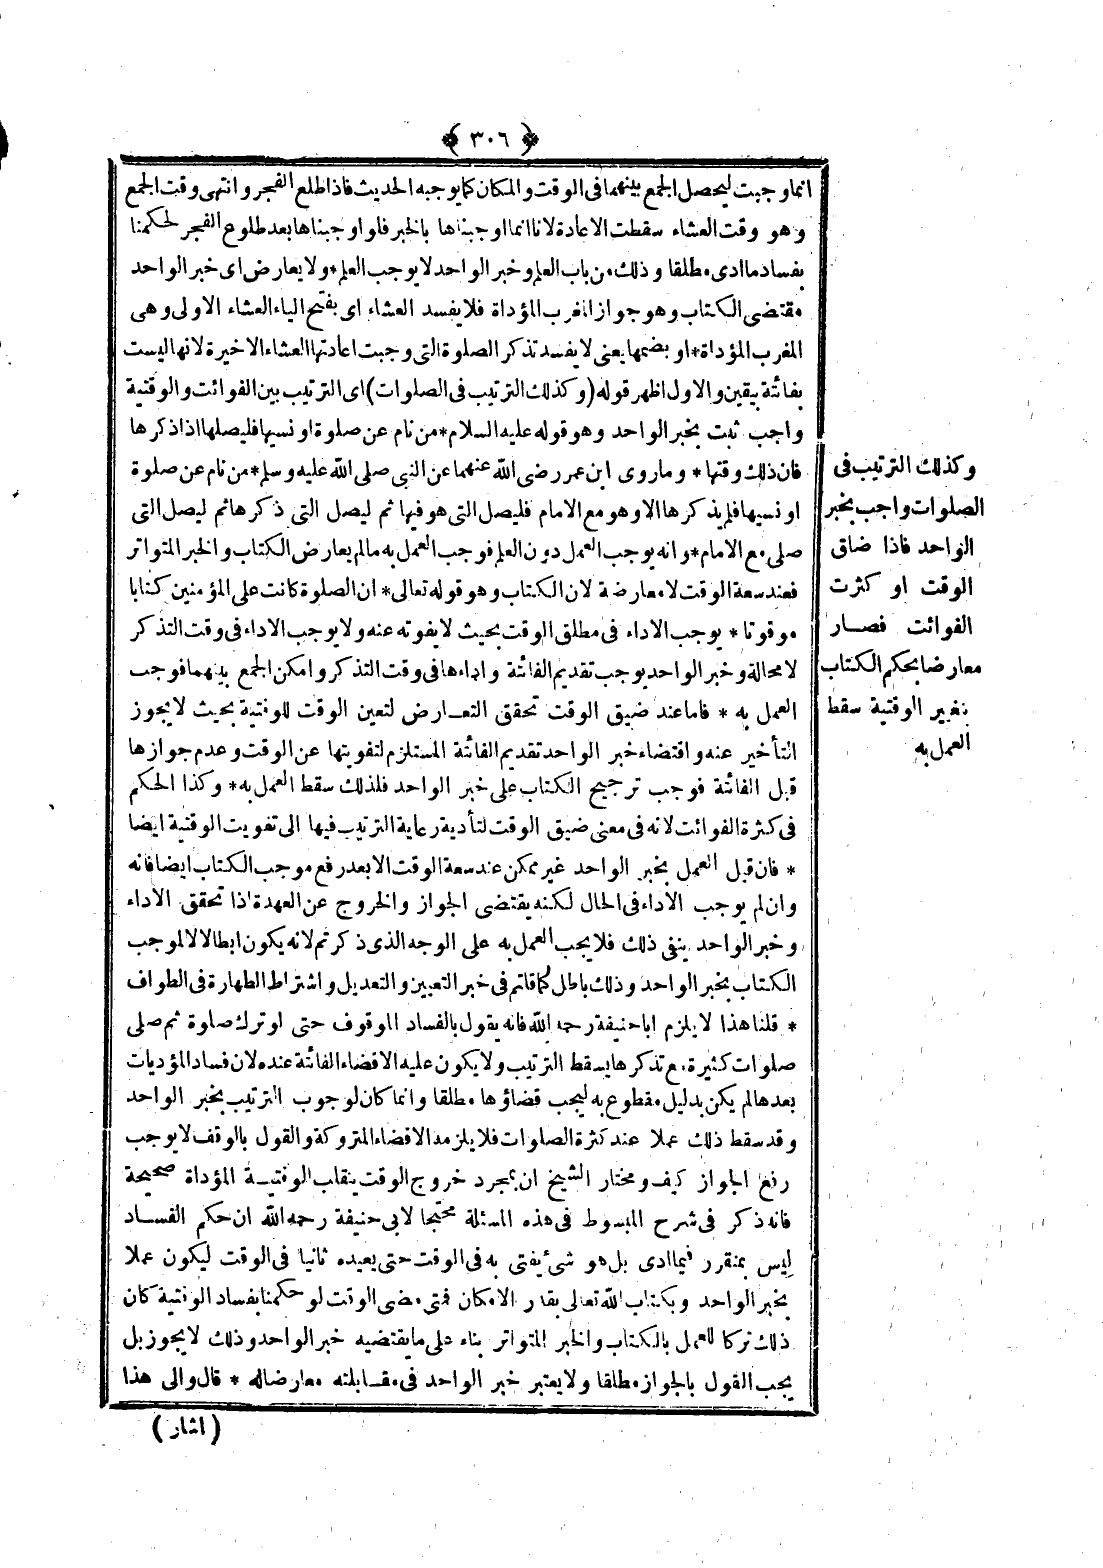 ﴿ ٣٠٦ ﴾
انما وجبت ليحصل الجمع بينهما فى الوقت والمكان كما يوجبه الحديث فاذا طلع الفجر وانتهى وقت الجمع
وهو وقت العشاء سقطت الاعادة لانا انما اوجبناها بالخبر فلو اوجبناها بعد طلوع الفجر لحكمنا
بفساد ما ادى مطلقا وذلك من باب العلم وخبر الواحد لا يوجب العلم * ولا يعارض اى خبر الواحد
مقتضى الكتاب وهو جواز المغرب المؤداة فلا يفسد العشاء اى بفتح الياء العشاء الاولى وهى
المغرب المؤداة * او بضمها يعنى لا يفسد تذكر الصلوة التى وجبت اعادتها العشاء الاخيرة لانها ليست
بفائتة بيقين والاول اظهر قوله (وكذلك الترتيب فى الصلوات) اى الترتيب بين الفوائت والوقتية
واجب ثبت بخبر الواحد وهو قوله عليه السلام * من نام عن صلوة او نسيها فليصلها اذا ذكرها
فان ذلك وقتها * وما روى ابن عمر رضى الله عنهما عن النبى صلى الله عليه وسلم * من نام عن صلوة
او نسيها فلم يذكرها الا وهو مع الامام فليصل التى هو فيها ثم ليصل التى ذكرها ثم ليصل التى
صلى مع الامام * وانه يوجب العمل دون العلم فوجب العمل به مالم يعارض الكتاب والخبر المتواتر
فعند سعة الوقت لا معارضة لان الكتاب وهو قوله تعالى * ان الصلوة كانت على المؤمنين كتابا
موقوتا * يوجب الاداء فى مطلق الوقت بحيث لا يفوته عنه ولا يوجب الاداء فى وقت التذكر
لا محالة وخبر الواحد يوجب تقديم الفائتة واداءها فى وقت التذكر وامكن الجمع بينهما فوجب
العمل به * فاما عند ضيق الوقت تحقق التعارض لتعين الوقت للوقتية بحيث لا يجوز
التأخير عنه واقتضاء خبر الواحد تقديم الفائتة المستلزم لتفويتها عن الوقت وعدم جوازها
قبل الفائتة فوجب ترجيح الكتاب على خبر الواحد فلذلك سقط العمل به * وكذا الحكم
فى كثرة الفوائت لانه فى معنى ضيق الوقت لتأدية رعاية الترتيب فيها الى تفويت الوقتية ايضا
* فان قيل العمل بخبر الواحد غير ممكن عند سعة الوقت الا بعد رفع موجب الكتاب ايضا فانه
وان لم يوجب الاداء فى الحال لكنه يقتضى الجواز والخروج عن العهدة اذا تحقق الاداء
وخبر الواحد ينفى ذلك فلا يجب العمل به على الوجه الذى ذكرتم لانه يكون ابطالا لموجب
الكتاب بخبر الواحد وذلك باطل كما قلتم فى خبر التعيين والتعديل واشتراط الطهارة فى الطواف
* قلنا هذا لا يلزم ابا حنيفة رحمه الله فانه يقول بالفساد الموقوف حتى لو ترك صلوة ثم صلى
صلوات كثيرة مع تذكرها يسقط الترتيب ولا يكون عليه الا قضاء الفائتة عنده لان فساد المؤديات
بعدها لم يكن بدليل مقطوع به ليجب قضاؤها مطلقا وانما كان لوجوب الترتيب بخبر الواحد
وقد سقط ذلك عملا عند كثرة الصلوات فلا يلزمه الا قضاء المتروكة والقول بالوقف لا يوجب
رفع الجواز كيف ومختار الشيخ ان بمجرد خروج الوقت ينقلب الوقتية المؤداة صحيحة
فانه ذكر فى شرح المبسوط فى هذه المسئلة محتجا لابى حنيفة رحمه الله ان حكم الفساد
ليس بمتقرر فيما ادى بل هو شئ يفتى به فى الوقت حتى يعيده ثانيا فى الوقت ليكون عملا
بخبر الواحد وبكتاب الله تعالى بقدر الامكان فمتى مضى الوقت لو حكمنا بفساد الوقتية كان
ذلك تركا للعمل بالكتاب والخبر المتواتر بناء على ما يقتضيه خبر الواحد وذلك لا يجوز بل
يجب القول بالجواز مطلقا ولا يعتبر خبر الواحد فى مقابلته معارضا له * قال والى هذا
(اشار)
وكذلك الترتيب فى
الصلوات واجب بخبر
الواحد فاذا ضاق
الوقت او كثرت
الفوائت فصار
معارضا بحكم الكتاب
بتغيير الوقتية سقط
العمل به